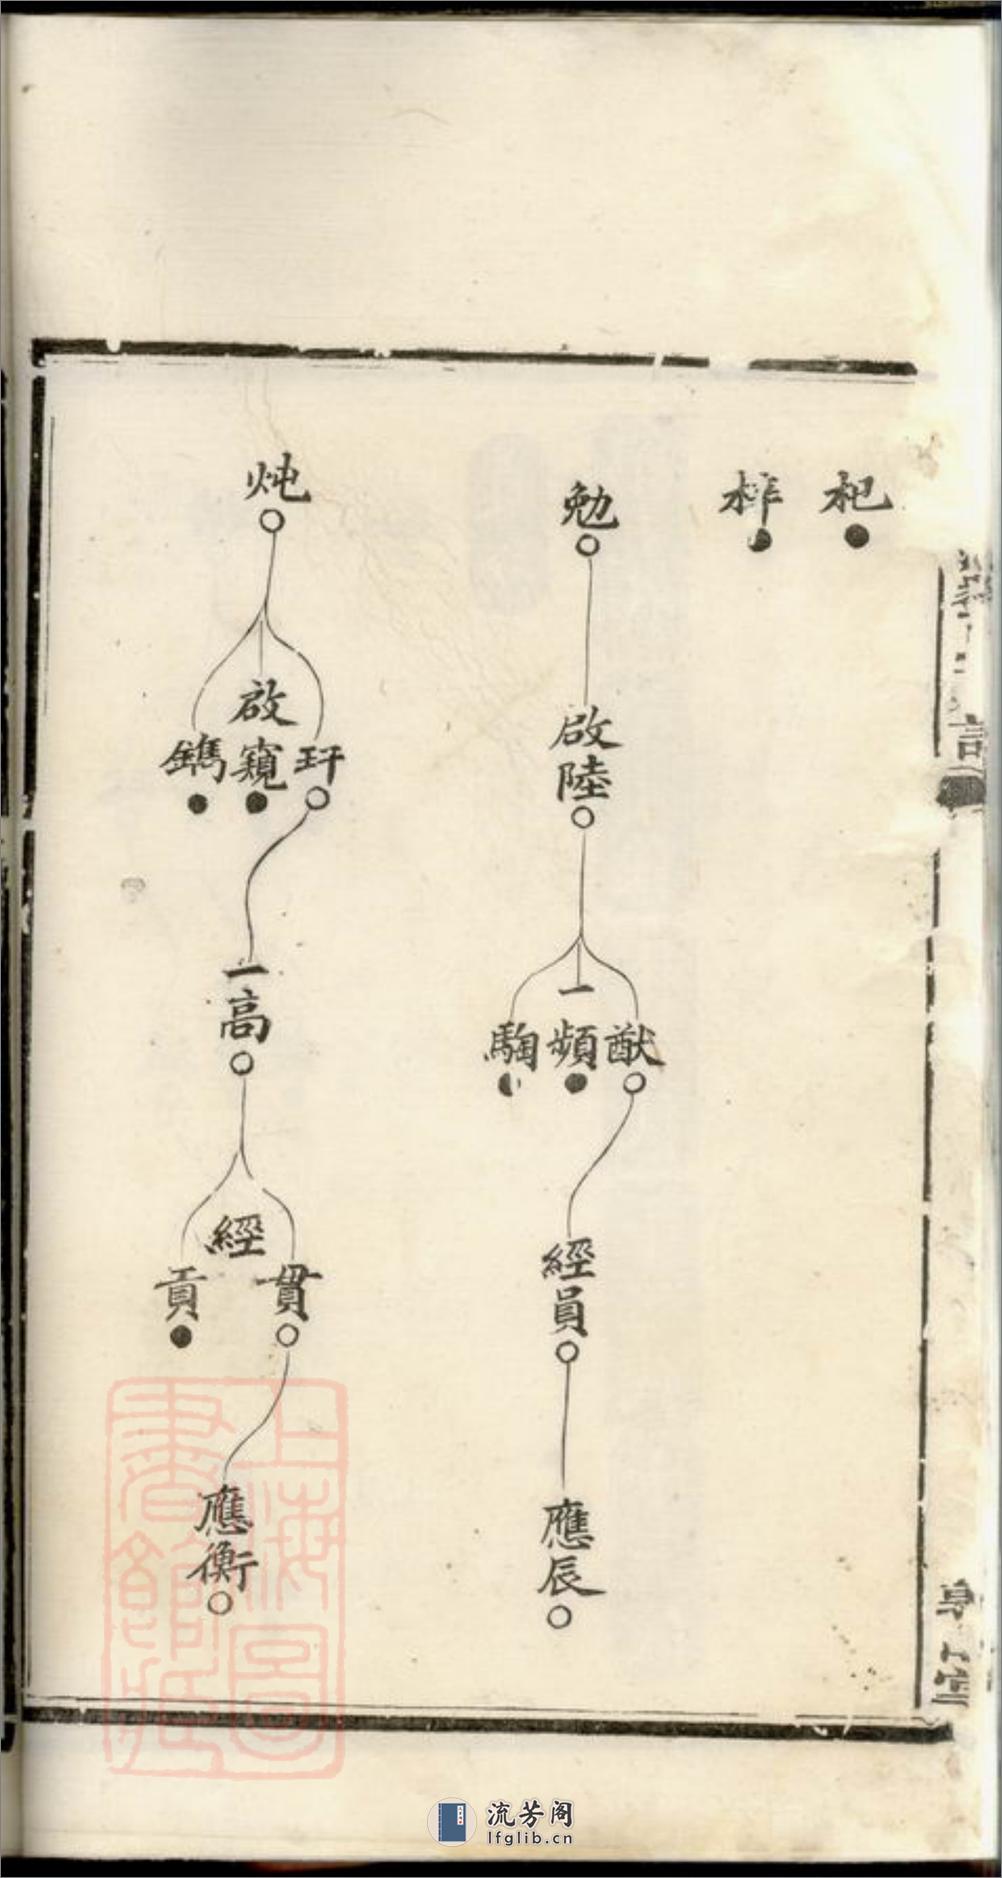 杞
柞
勉
啟陸
一
猷
頻
騊
經員
應辰
炖
啟
玕
窺
鐫
一高
經
貫
貢
應衡
上海圖
書館藏
流芳阁
lfglib.cn